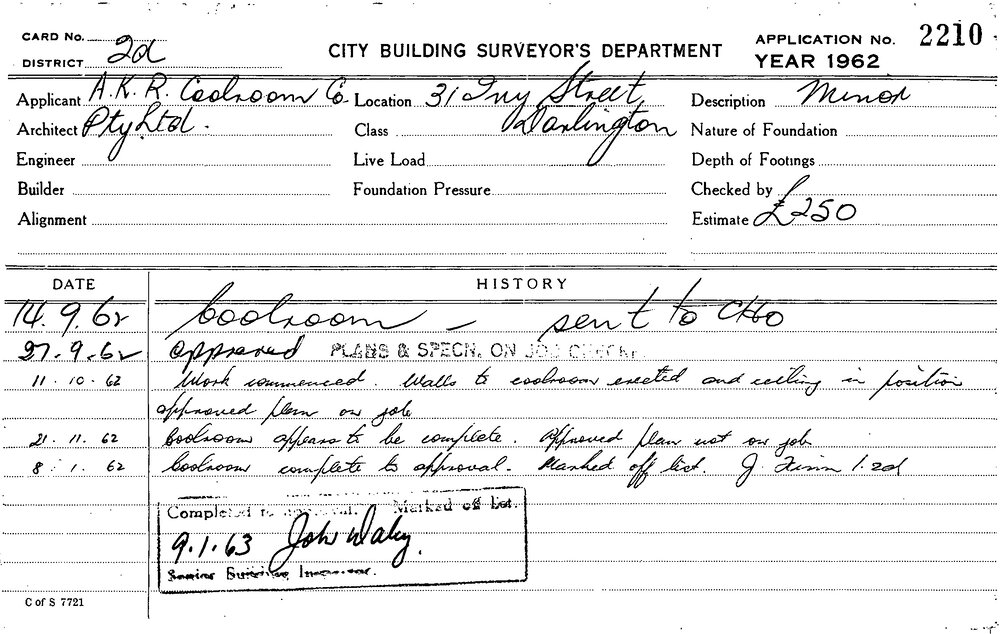 CARD No.
DISTRICT 2d
CITY BUILDING SURVEYOR'S DEPARTMENT
APPLICATION No. 2210
YEAR 1962
Applicant A.K.R. Coolroom Co. Location 31 Ivy Street, Description Minor
Architect Pty Ltd. Class Darlington Nature of Foundation
Engineer Live Load Depth of Footings
Builder Foundation Pressure Checked by
Alignment Estimate £250
DATE HISTORY
14.9.62 Coolroom – sent to CHO
27.9.62 approved PLANS & SPECN. ON JOB CHECKED.
11.10.62 Work commenced. Walls to coolroom erected and ceiling in position
approved plan on job
21.11.62 Coolroom appears to be complete. Approved plan not on job
8.1.62 Coolroom complete to approval. Marked off list. J. 1.2d
Completed to approval. Marked off list.
9.1.63 John Daley.
Senior Building Inspector.
C of S 7721